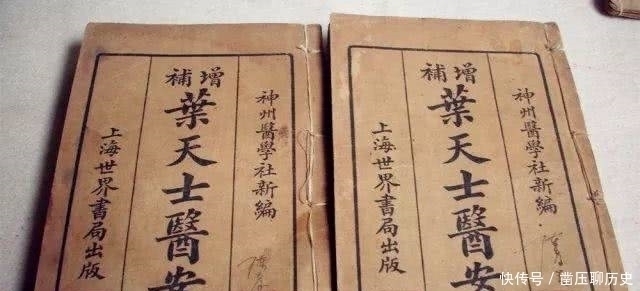 神州醫學社新編
增補
葉天士醫案
上海世界書局出版
神州醫學社新編
增補
葉天士醫案
上海世界書局出版
快传号/凿压聊历史